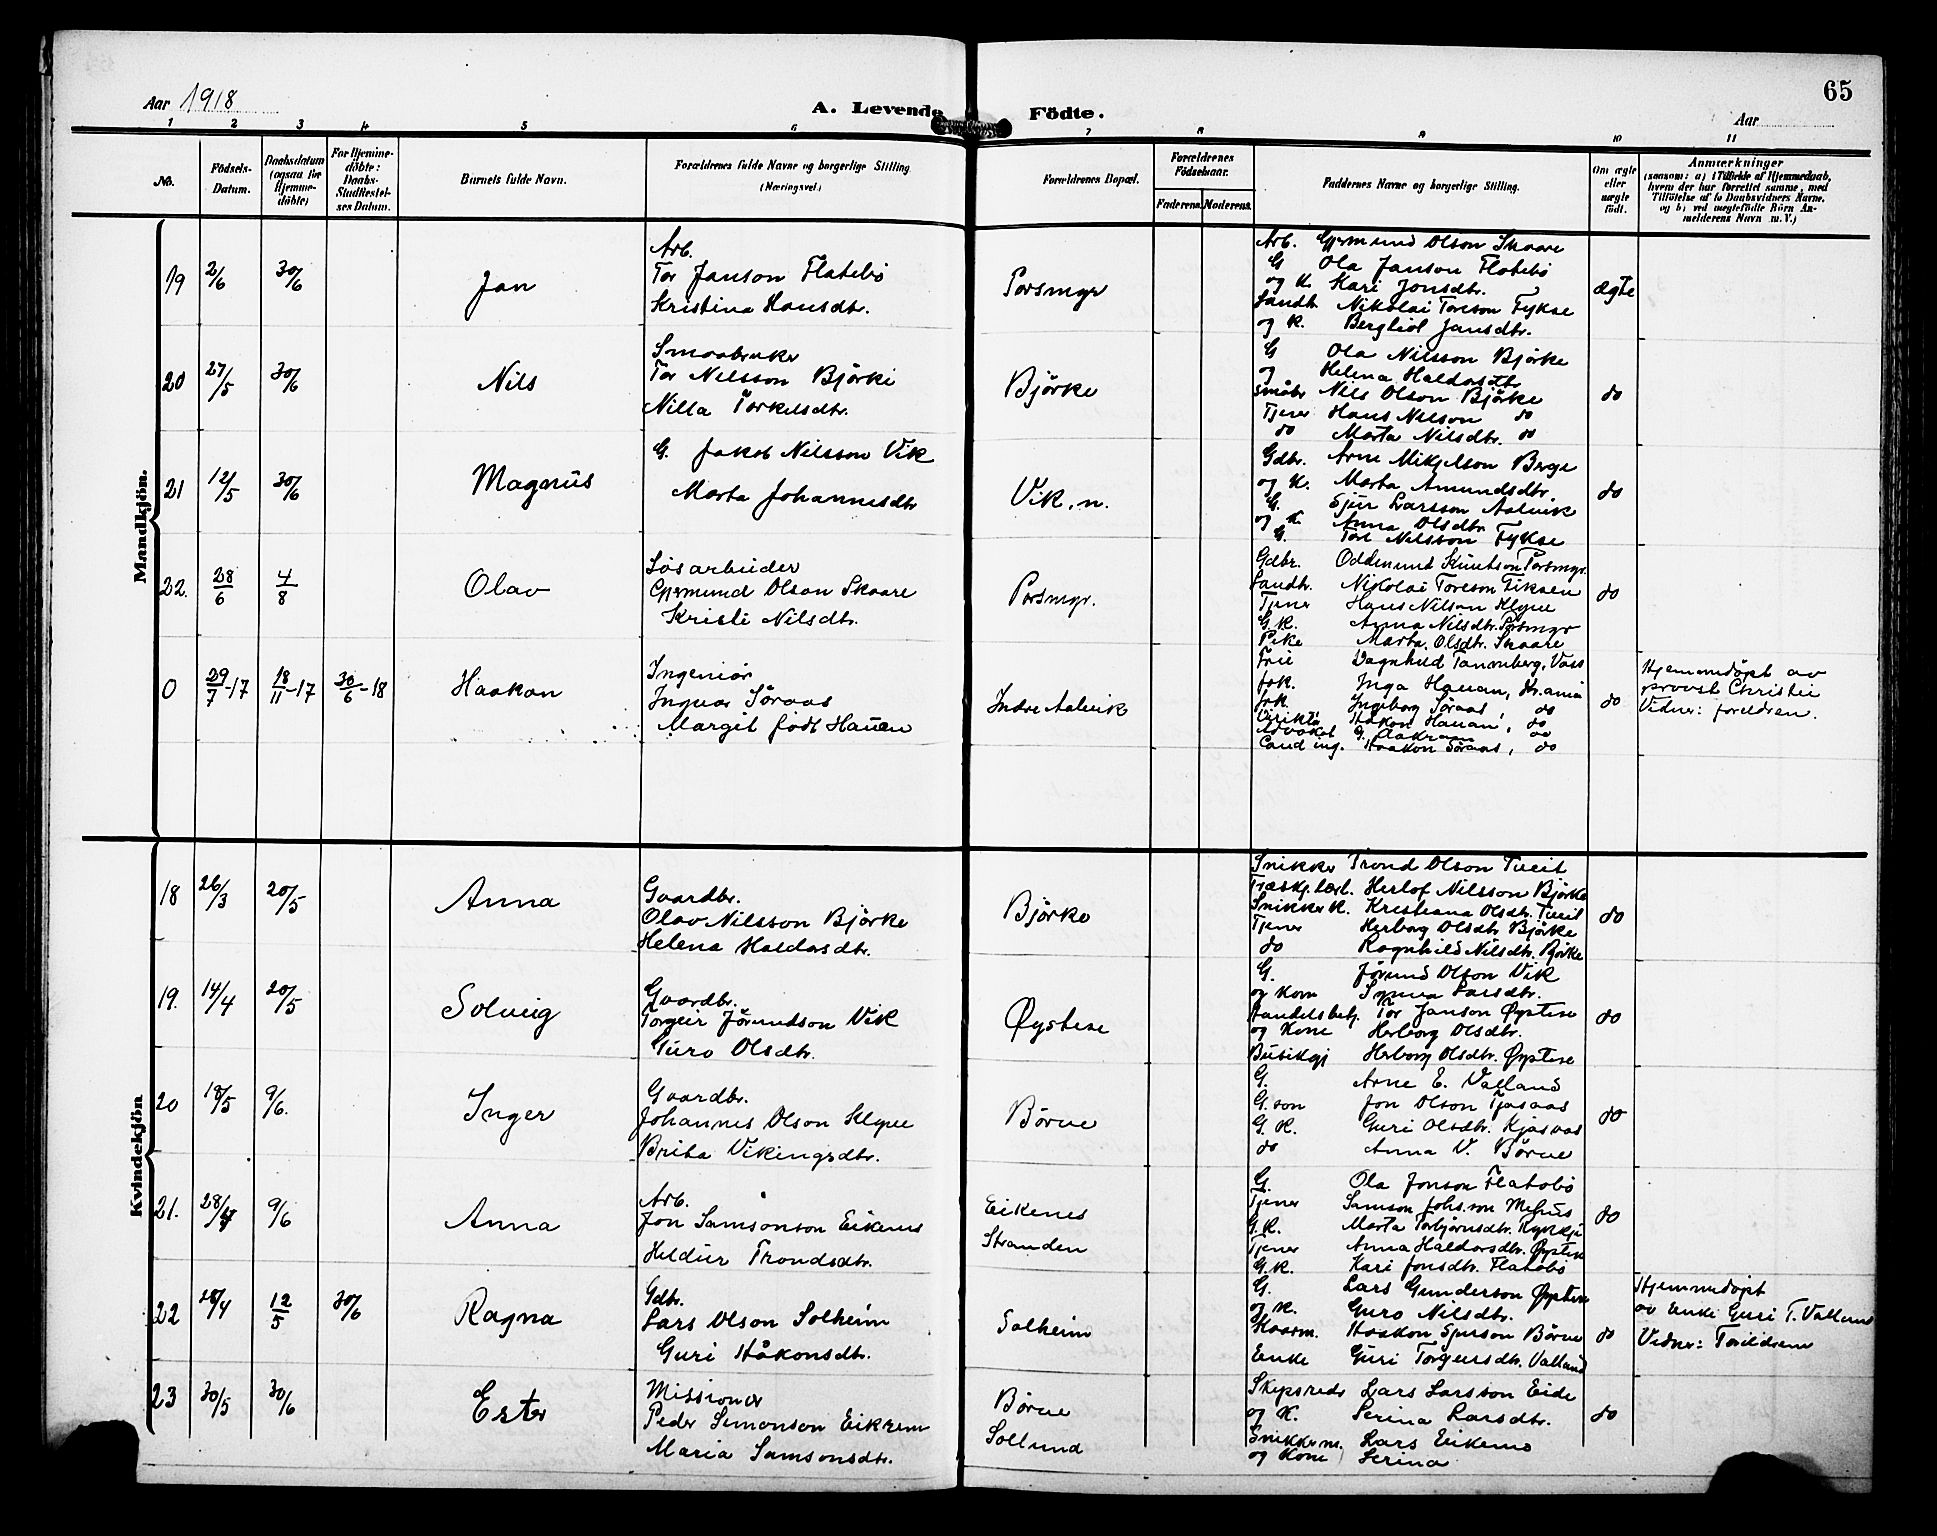 Aar 1918
A. Levende Födte.
65
Aar
1 2 3 4 5 6 7 8 9 10 11
No.
Födsels-Datum.
Daabsdatum (ogsaa for Hjemme-döbte)
For Hjemme-döbte: Daabs-Stadfæstel-ses Datum.
Barnets fulde Navn.
Forældrenes fulde Navne og borgerlige Stilling (Næringsvei.)
Forældrenes Bopæl.
Forældrenes Födselsaar.
Faderens. Moderens.
Faddernes Navne og borgerlige Stilling.
Om ægte eller uægte födt.
Anmærkninger
(saasom: a) i Tilfælde af Hjemmedaab,
hvem der har forrettet samme, med
Tilföielse af to Daabsvidners Navne,
og b) ved uægtefödte Börn An-
melderens Navn m. V.)
Mandkjön.
19 2/6 30/6 Jan
Arb.
Tor Janson Flatebö
Kristina Hansdtr.
Porsmyr
Arb. Gjermund Olson Skaare
G Ola Janson Flatebö
og K. Kari Jonsdtr.
Landh. Nikolai Toreson Fykse
og K. Bergliot Jansdtr.
ægte
20 27/5 30/6 Nils
Smaabruker
Tor Nilsson Björke
Nilla Torkelsdtr.
Björke
G Ola Nilsson Björke
og Helena Haldorsdtr
Småbr Nils Olson Björke
Tjener Hans Nilson do
do Marta Nilsdtr. do
do
21 12/5 30/6 Magnus
G. Jakob Nilsson Vik
Marta Johannesdtr
Vik, n.
Gdbr. Arne Mikjelson Berge
og K. Marta Amundsdtr.
G. Sjur Larsson Aalvik
og K. Anna Olsdtr
G. Tore Nilsson Fykse
do
22. 28/6 4/8 Olav
Lösarbeider
Gjermund Olson Skaare
Kristi Nilsdtr.
Porsmyr.
Gdbr. Oddmund Knutson Porsmyr.
Landh. Nikolai Toreson Fiksen
Tjener Hans Nilson Klyve
G. K. Anna Nilsdtr. Porsmyr
Pike Marta Olsdtr. Skaare
do
0 29/7-17 18/11-17 30/6-18 Haakon
Ingeniör
Ingvar Söraas
Margit födt Hauan
Indre Aalvik
Frue Dagnhild Tannberg, Voss
frk. Inga Hauan, Kr.ania
frk. Ingeborg Söraas, do
Håkon Hauan, do
Advokat G. Aakraan do
Cand ing. Haakon Söraas, do
do
Hjemmedöpt av
provst Christie
Vidner: foreldren.
Kvindekjön
18 26/3 20/5 Anna
Gaardbr.
Olav Nilsson Björke
Helena Haldorsdtr.
Björke
Snikker Trond Olson Tveit
Herlof Nilsson Björke
Snikker K. Kristiana Olsdtr. Tveit
Tjener Herborg Olsdtr Björke
do Ragnhild Nilsdtr. Björke
do
19. 14/4 20/5 Solveig
Gaardbr.
Torgeir Jörundson Vik
Guro Olsdtr.
Øystese
G. Jörund Olson Vik
og Kone Synva Larsdtr.
Handelsbetj. Tor Janson Øystese
og Kone Herborg Olsdtr.
Herborg Olsdtr. Øystese
do
20 18/5 9/6. Inger
Gaardbr.
Johannes Olson Klyve
Brita Vikingsdtr.
Börve
G. Arne E. Valland
G. son Jon Olson Tjosaas
G. K. Guri Olsdtr. Kjosaas
do Anna V. Börve
do
21. 28/4 9/6 Anna
Arb.
Jon Samsonson Eikenes
Heldur Trondsdtr.
Eikenes
Stranden
G. Ola Jonson Flatebö
Tjener Samson Johs.son Mehus
G. K. Marta Torbjörnsdtr.
Tjener Anna Haldorsdtr. Øystese
G. K. Kari Jonsdtr. Flatebö
do
22 28/4 12/5 30/6 Ragna
Gdbr.
Lars Olson Solheim
Guri Håkonsdtr.
Solheim
G. Lars Gunderson Øystese
og K. Guro Nilsdtr.
Haakon Sjurson Börve
Enke Guri Torgeirsdtr. Valland
do
Hjemmedöpt
av Enke Guri T. Valland
Vidner: Foreldrene
23 30/5 30/6 Ester
Missionær
Peder Simonson Eikrem
Maria Samsonsdtr.
Börve
Sollund
Skipsreder Lars Larsson Eide
og K. Serina Larsdtr.
Snikkerm. Lars Eikenes
og Kone Serina
do